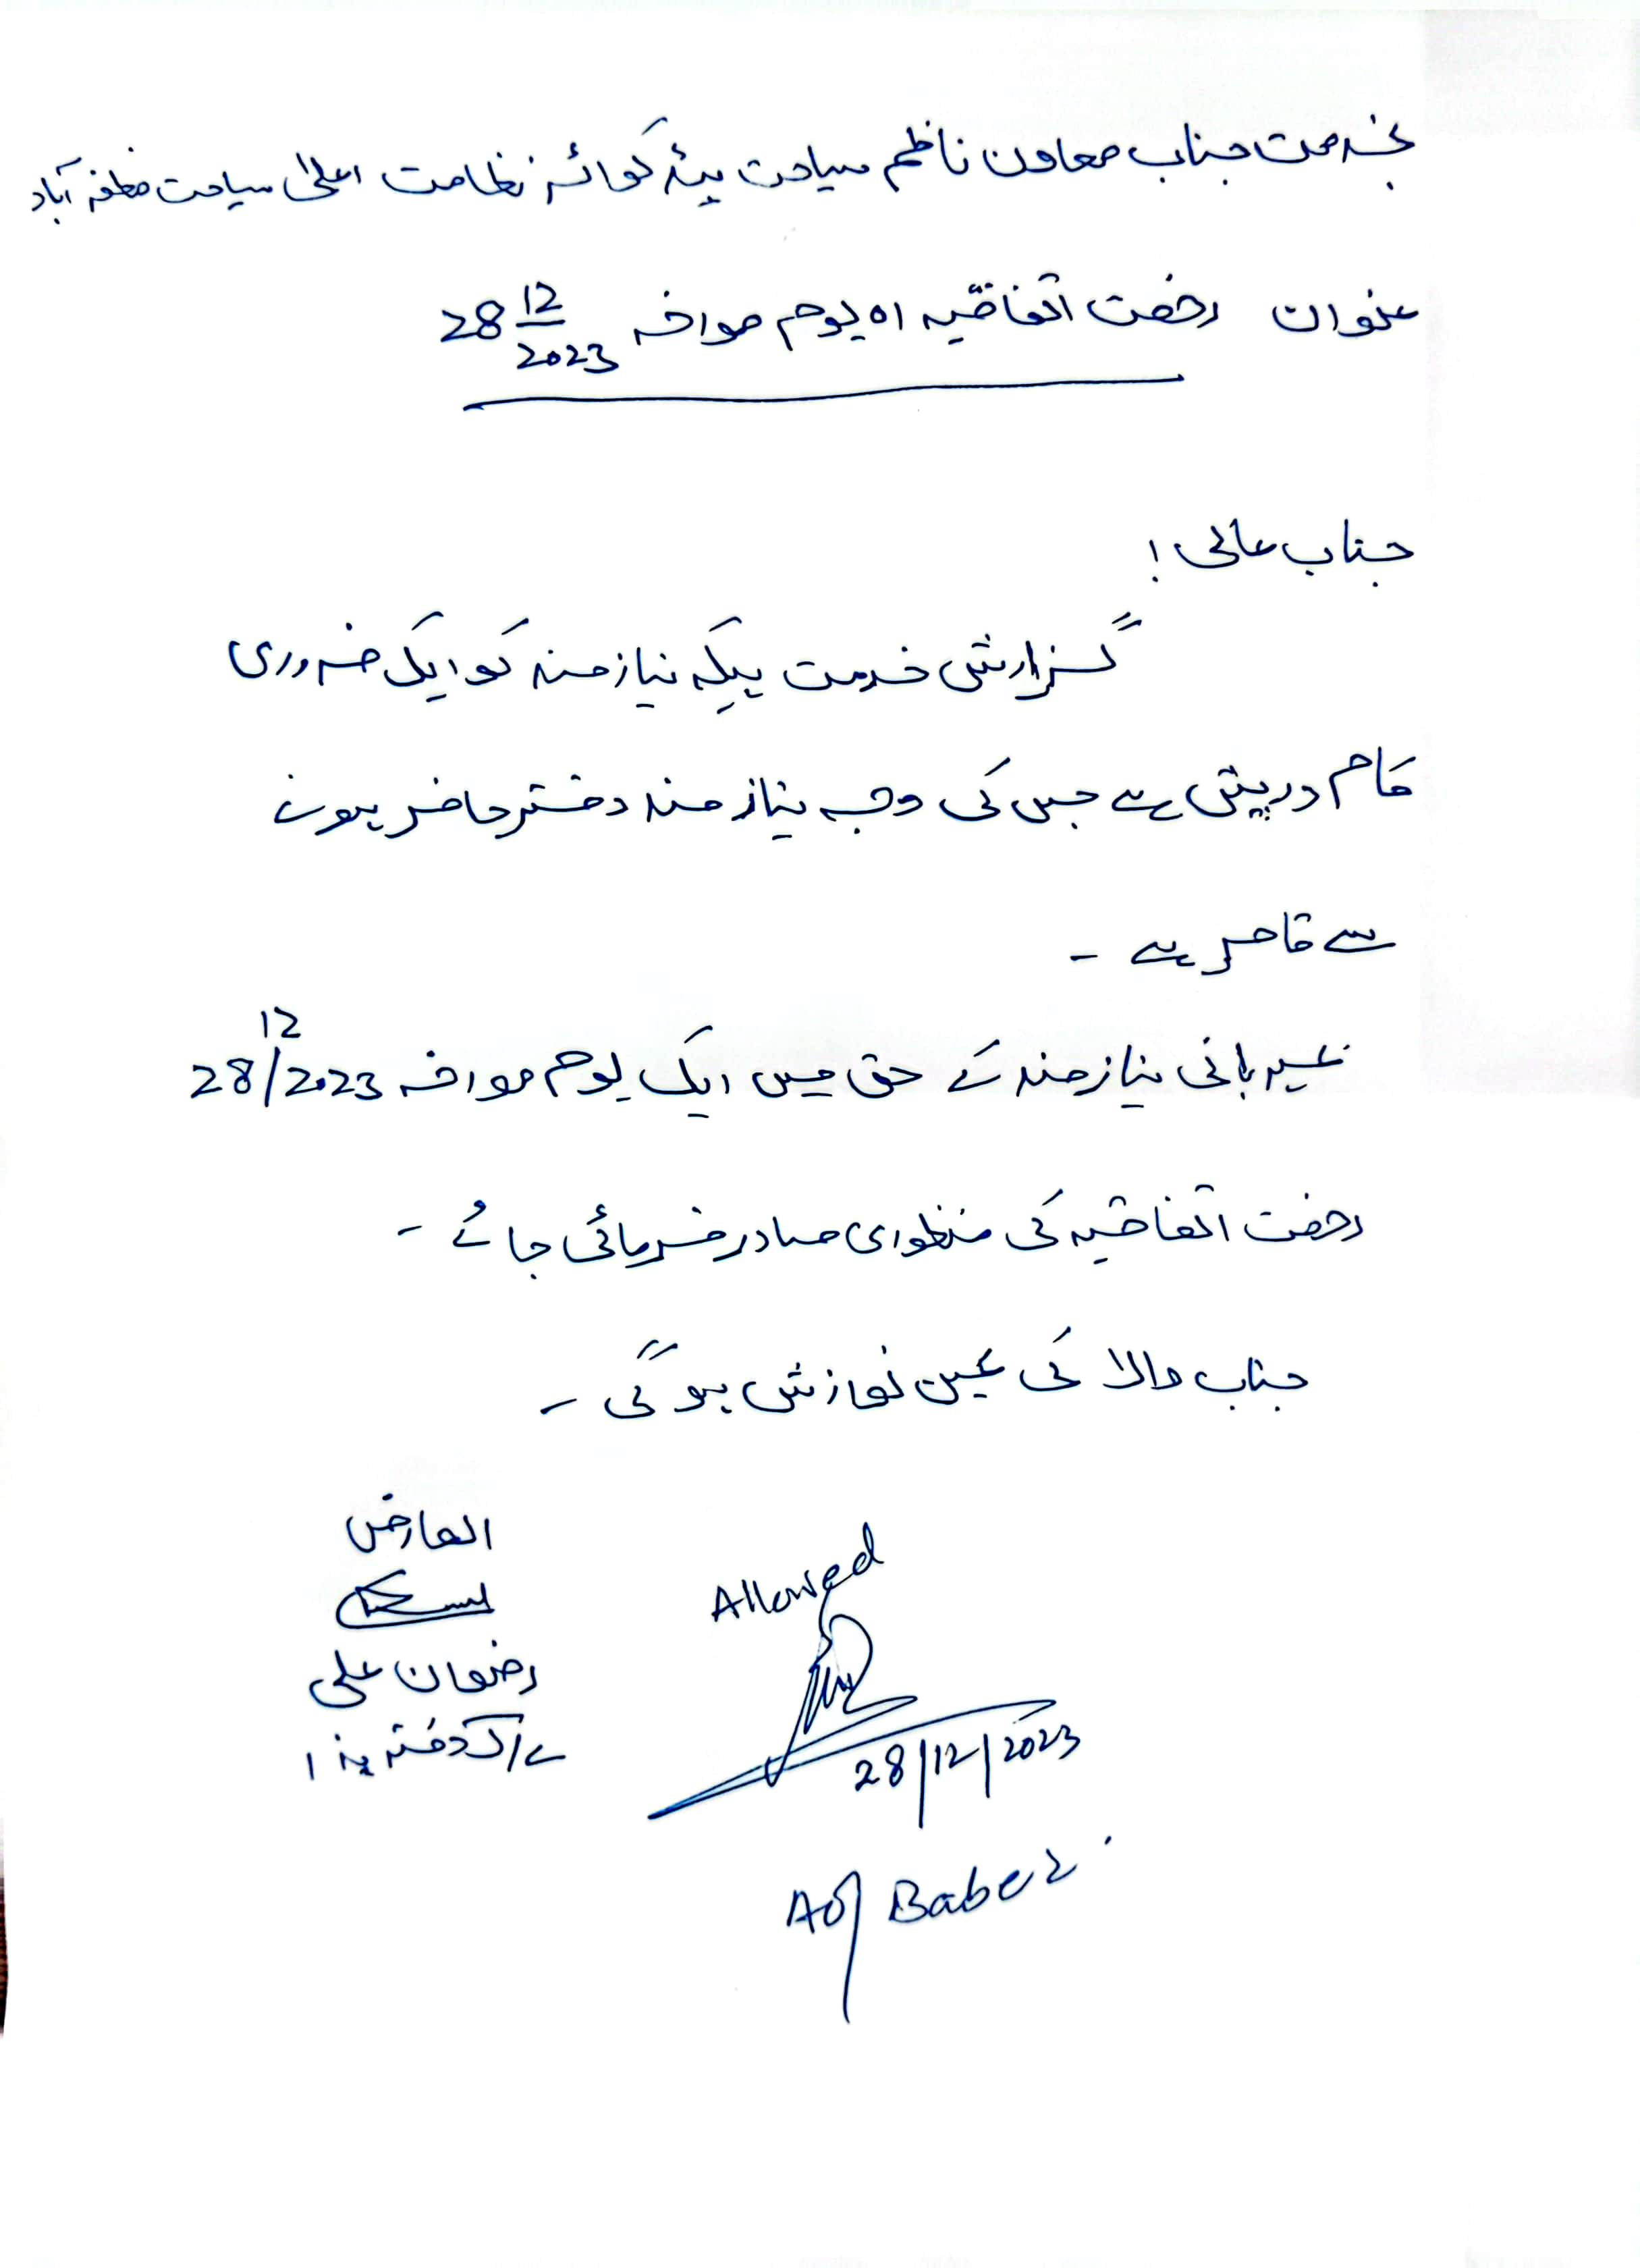 بخدمت جناب معاون ناظم سیاحت ہیڈ کوائر نظامت اعلیٰ سیاحت مظفر آباد
عنوان رخصت اتفاقیہ 01 یوم مورخہ 28 12/2023
جناب عالی !
گزارش خدمت ہیکہ نیازمند کو ایک ضروری
کام درپیش ہے جس کی وجہ نیازمند دفتر حاضر ہونے
سے قاصر ہے ۔
مہربانی نیازمند کے حق میں ایک یوم مورخہ 28/12/2023
رخصت اتفاقیہ کی منظوری صادر فرمائی جائے ۔
جناب والا کی عین نوازش ہو گی ۔
العارض
رضوان علی
کلرک دفتر ہذا
Allowed
28/12/2023
Baber